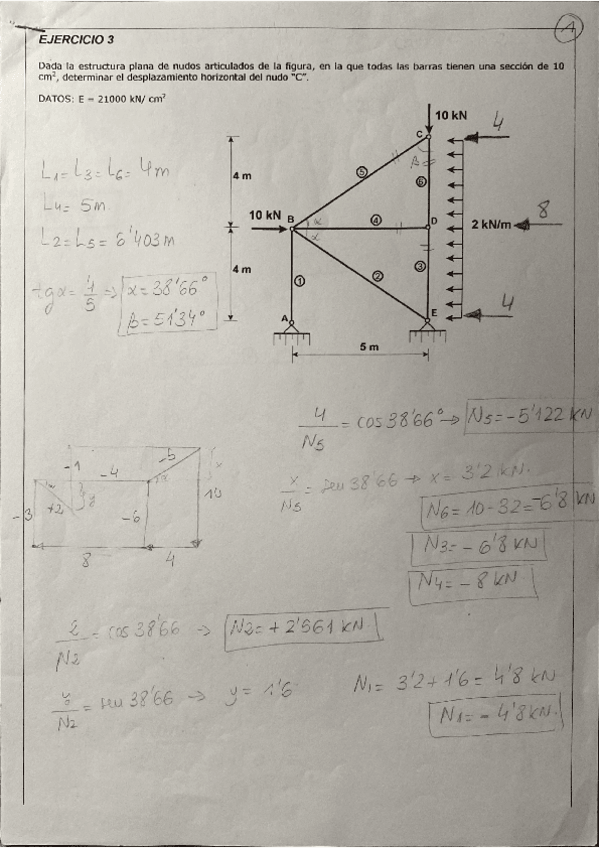 A
EJERCICIO 3
Dada la estructura plana de nudos articulados de la figura, en la que todas las barras tienen una sección de 10
cm², determinar el desplazamiento horizontal del nudo "C".
DATOS: E = 21000 kN/ cm²
10 kN
C
4
L1 = L3 = L6 = 4m
β
5
6
4 m
L4 = 5m
10 kN
B
α
4
D
2 kN/m
8
L2 = L5 = 6'403m
α
tgα = 4/5 → α = 38'66°
β = 51'34°
4 m
1
2
3
A
E
4
5 m
4/N5 = cos 38'66° → N5 = -5'122 kN
x/N5 = sen 38'66 → x = 3'2 kN.
N6 = 10-32 = -6'8 kN
N3 = -6'8 kN
N4 = -8 kN
-1
-4
-5
x
-3
+2
α
y
α
-6
10
8
4
2/N2 = cos 38'66 → N2 = +2'561 kN.
y/N2 = sen 38'66 → y = 1'6
N1 = 3'2 + 1'6 = 4'8 kN
N1 = -4'8 kN.